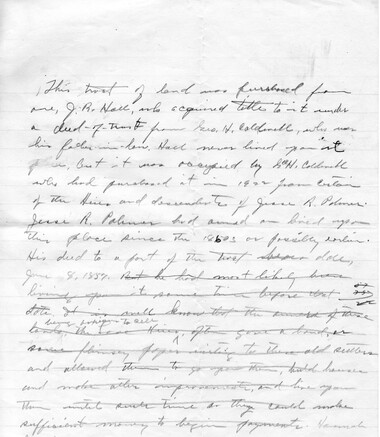 This tract of land was purchased from
one, J. R. Hall, who acquired title to it under
a deed-of-trust from Geo. H. Coldwell, who was
his father-in-law. Hall never lived upon it
but it was occupied by G. H. Coldwell
who had purchased it in from certain
of the Heirs and descendants of Jesse R. Palmer.
Jesse R. Palmer had owned or lived upon
this place since the 1850s or possibly earlier.
His deed to a part of the tract date,
June 8, 1859. But he had most likely been
living upon it some time before that
date. It is well known that the owners of these
begin to sell
often gave a bond, or
some flimsy paper writing to these old settlers
and allowed them to go upon them, build houses
and make other improvements, and live upon
them until such time as they could make
sufficient money to begin payments. Hannah